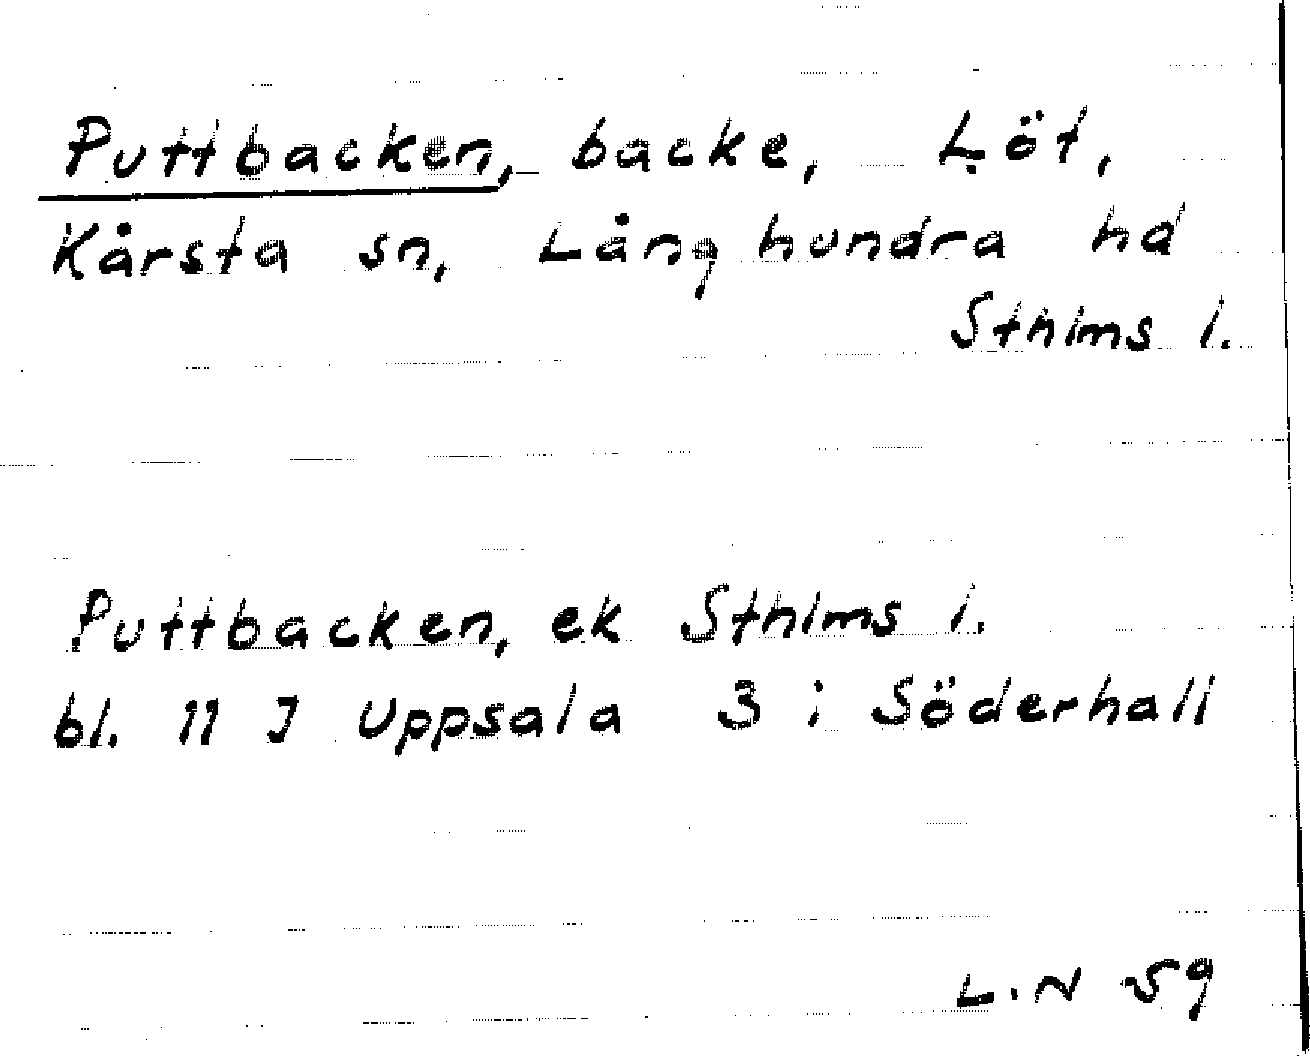 Puttbacken, backe, Löt,
Kårsta sn, Långhundra hd
Sthlms l.
Puttbacken, ek Sthlms l.
bl. 11 J Uppsala 3 i Söderhall
L.N 59